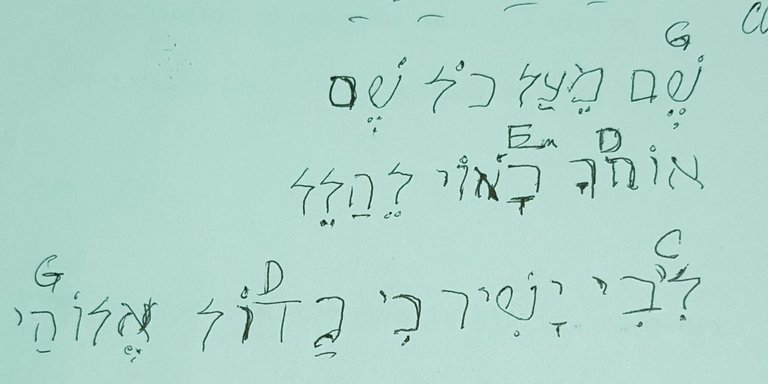 G
שֶׁם מֵעַל כֹל שֶׁם
Em D
אוֹתךָ רָאוֹי לְהַלֵל
G D C
לִבִּי יָשִׁיר כִּי גַדוֹל אֱלוֹהַי